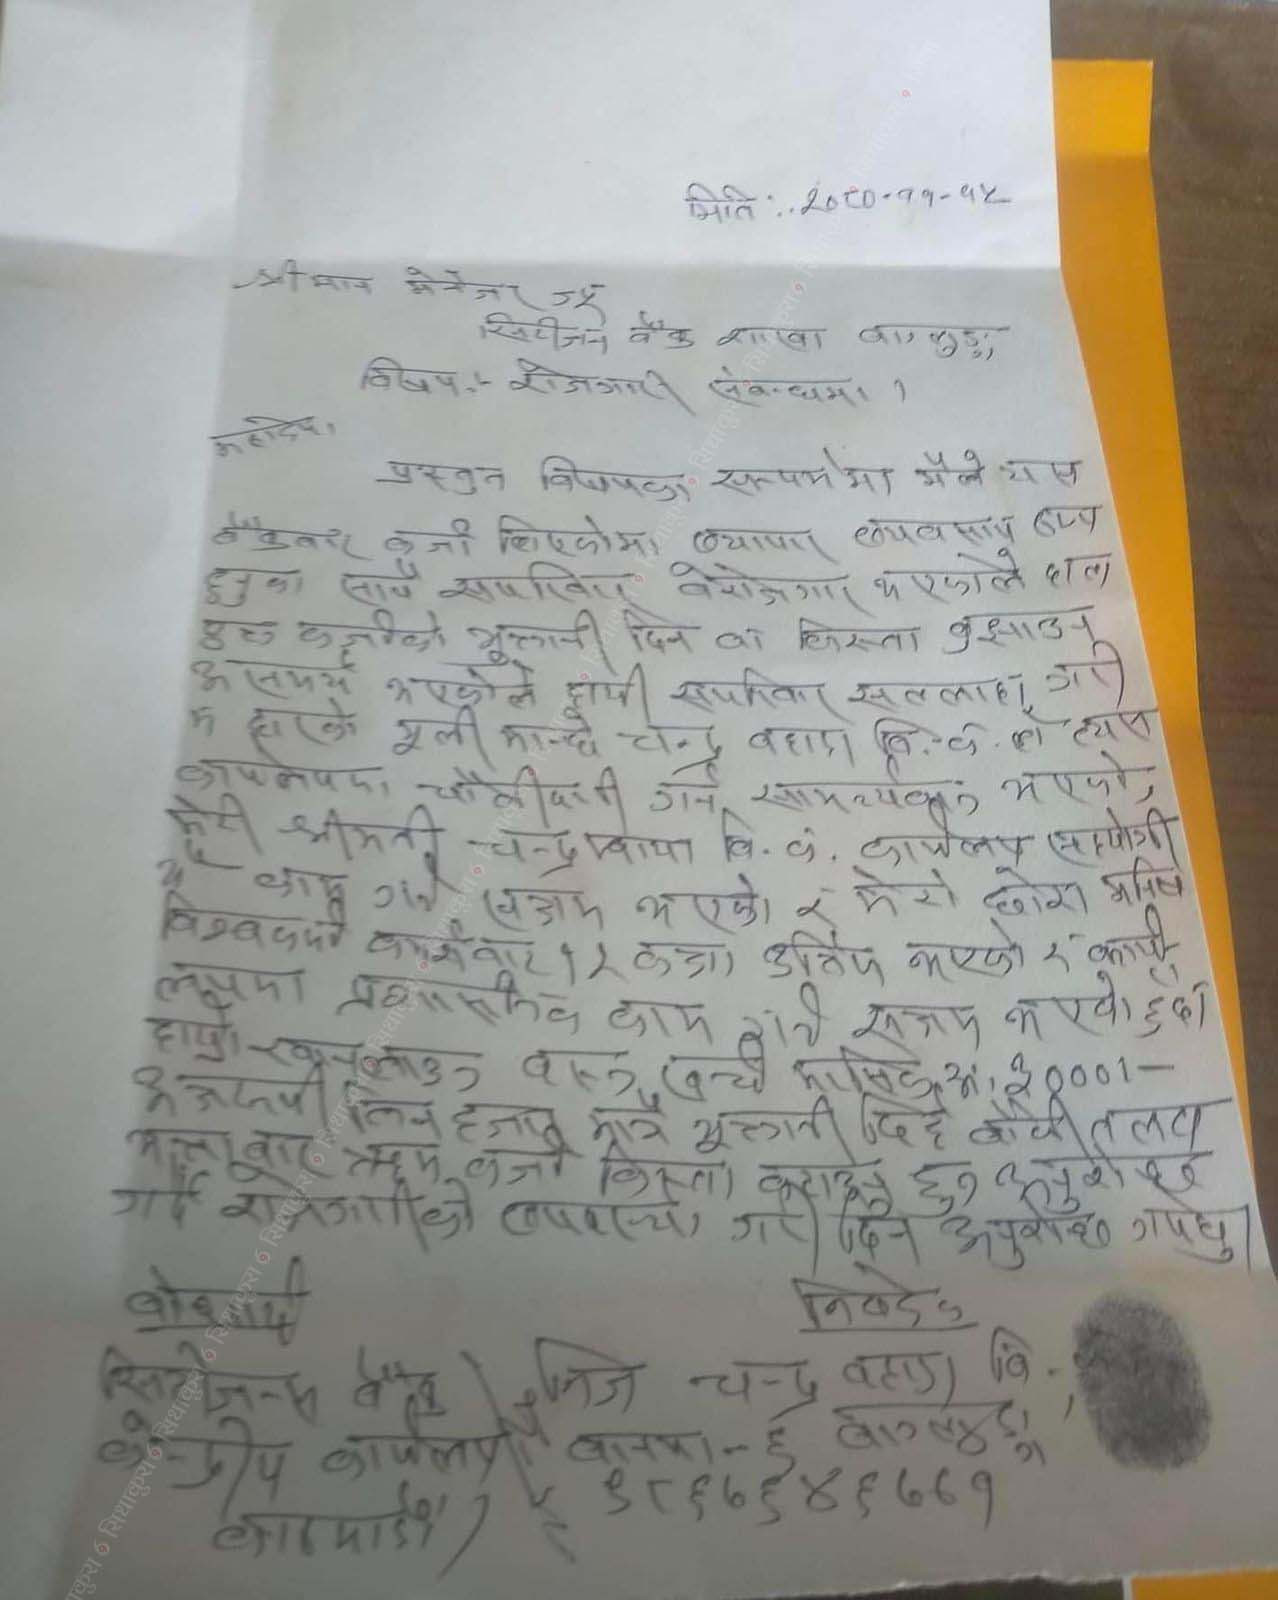 मिति :. २०८०-११-१५
श्रीमान मेनेजर ज्यू
सिटीजन बैंक शाखा बाग्लुङ्ग
विषय :- रोजगारी संबन्धमा ।
महोदय,
प्रस्तुत विषयका सम्बन्धमा मैले यस
बैंकबाट कर्जा लिएकोमा व्यापार व्यवसाय ठप्प
हुनुका साथै सपरिवार बेरोजगार भएकाले हाल
उक्त कर्जाको भुक्तानी दिन वा किस्ता बुझाउन
असमर्थ भएकोले हामी सपरिवार सल्लाह गरी
म घरको मूली मान्छे चन्द्र बहादुर वि.क. ले त्यस
कार्यलयमा चौकीदारी गर्न सामर्थ्यवान भएको,
मेरी श्रीमती चन्द्रमाया वि.क. कार्यलय सहयोगी
भै काम गर्न सक्षम भएको र मेरो छोरा
विश्वकर्मा १२ कक्षा उत्तिर्ण भएको र कार्या-
लयमा प्रशासनिक काम गर्न सक्षम भएको हुदाँ
हाम्रो खानलाउन बस्न खर्च मासिक
अक्षरुपी हजार मात्रै भुक्तानी दिई बाँकी तलव
भत्ताबाट ऋण कर्जा किस्ता कटाउनु हुन अनुरोध
गर्दै रोजगारीको व्यवस्था गरी दिन अनुरोध गर्दछु।
बोधार्थ
निवेदक
सिटीजन्स बैंक निज चन्द्र बहादुर वि.
केन्द्रीय कार्यलय बाग्लुङ्ग
काठमाडौं ९८६७६४६७७१
सिधाकुरा सिधाकुरा सिधाकुरा सिधाकुरा